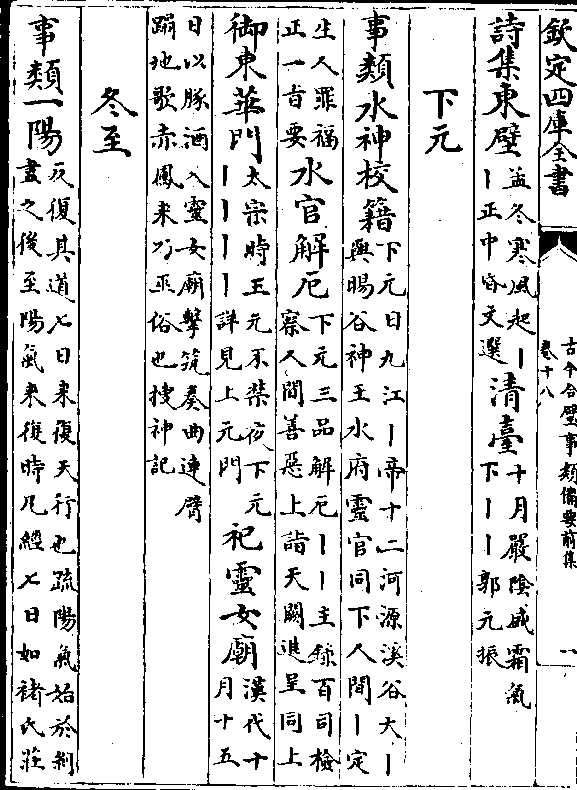 欽定四庫全書
古今合璧事類備要前集
卷十八
一
詩集東壁孟冬寒風起丨
丨正中昏文選清臺十月嚴陰盛霜氣
下丨丨郭元振
下元
事類水神校籍下元日九江丨帝十二河源溪谷大丨
與暘谷神王水府靈官同下人間丨定
生人罪福水官解厄下元三品解厄丨丨主錄百司檢
正一旨要察人間善惡上詣天闕進呈同上
御東華門太宗時五元不禁夜下元
丨丨丨丨詳見上元門祀靈女廟漢代十
月十五
日以豚酒入靈女廟擊筑奏曲連臂
蹋地歌赤鳳來乃巫俗也搜神記
冬至
事類一陽反復其道七日來復天行也疏陽氣始於剝
盡之後至陽氣來復時凡經七日如褚氏莊